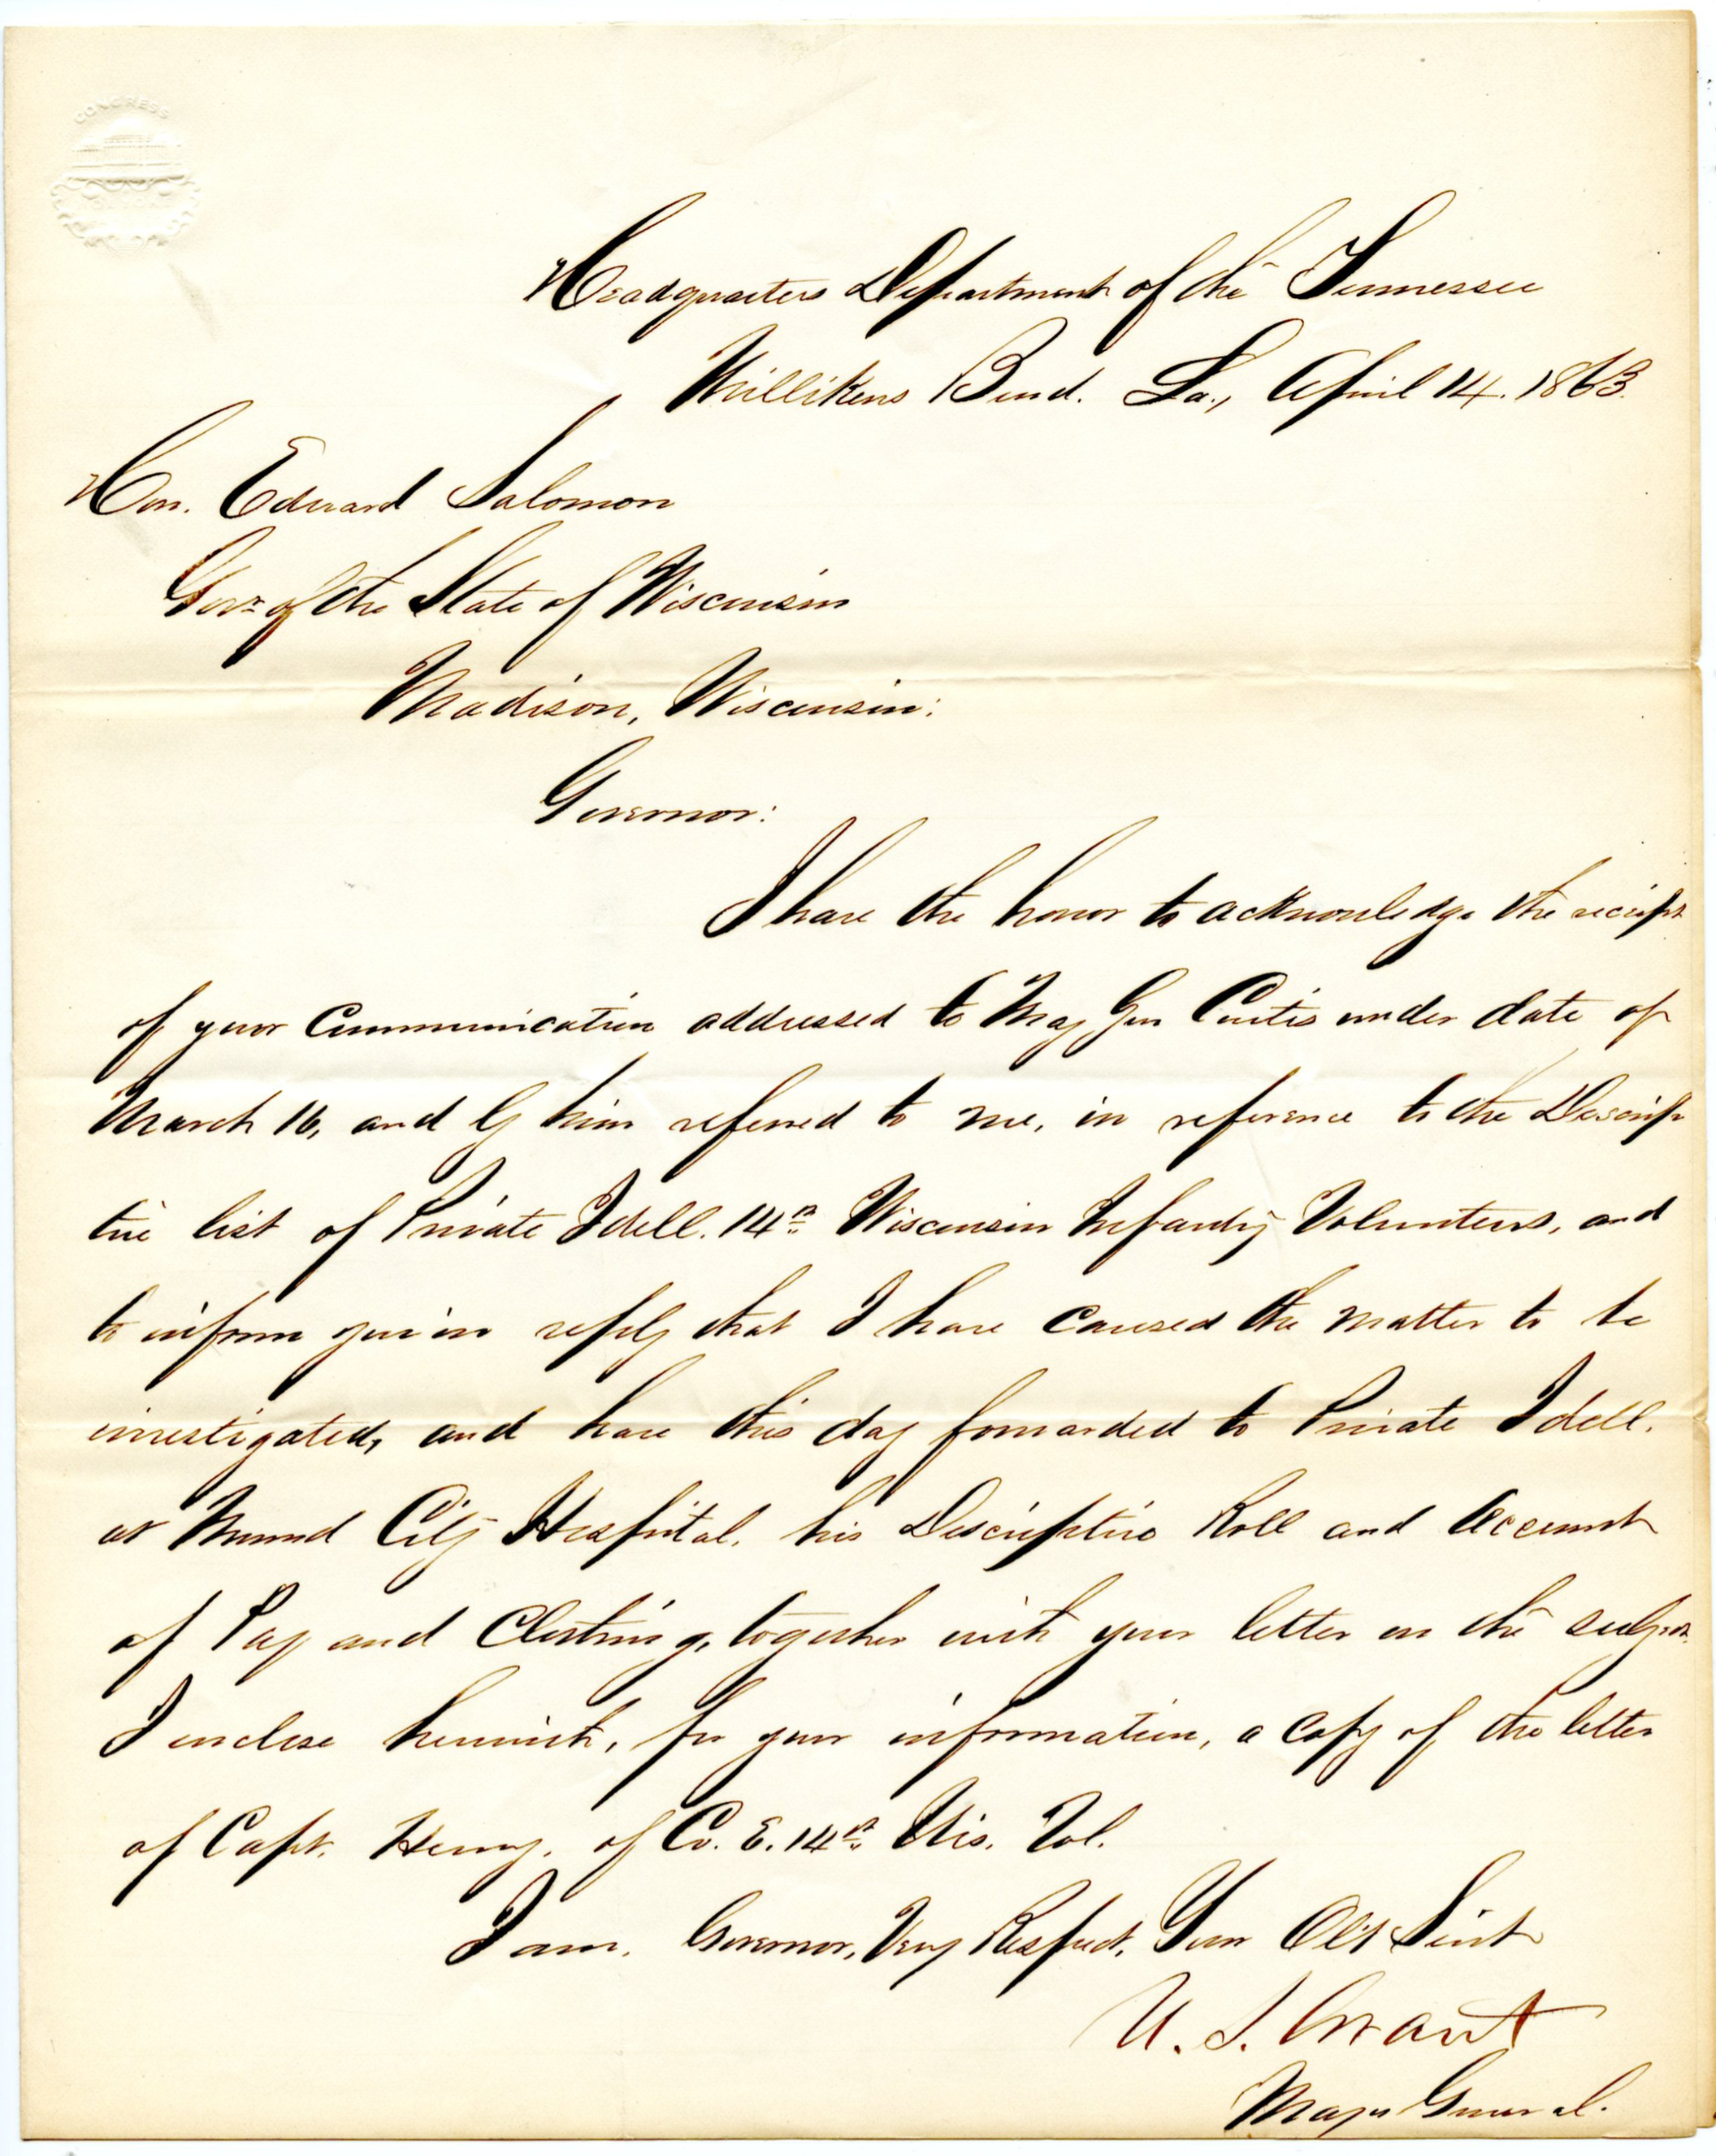 CONGRESS
Headquarters Department of the Tennessee
Millikens Bend. La., April 14. 1863.
Hon. Edward Salomon
Govr of the State of Wisconsin
Madison, Wisconsin:
Governor:
I have the honor to acknowledge the reciept
of your Communication addressed to Maj Gen Curtis under date of
March 16, and by him referred to me, in reference to the Descrip
tive list of Private Idell. 14th Wisconsin Infantry Volunteers, and
to inform you in reply that I have caused the matter to be
investigated, and have this day forwarded to Private Idell.
at Mound City Hospital. his Descriptive Roll and Account
of Pay and Clothing, together with your letter on the subject.
I enclose herewith, for your information, a copy of the letter
of Capt. Henry. of Co. E. 14th Wis. Vol.
I am. Governor, Very Respect. Your Obt Servt
U. S. Grant
Major General.